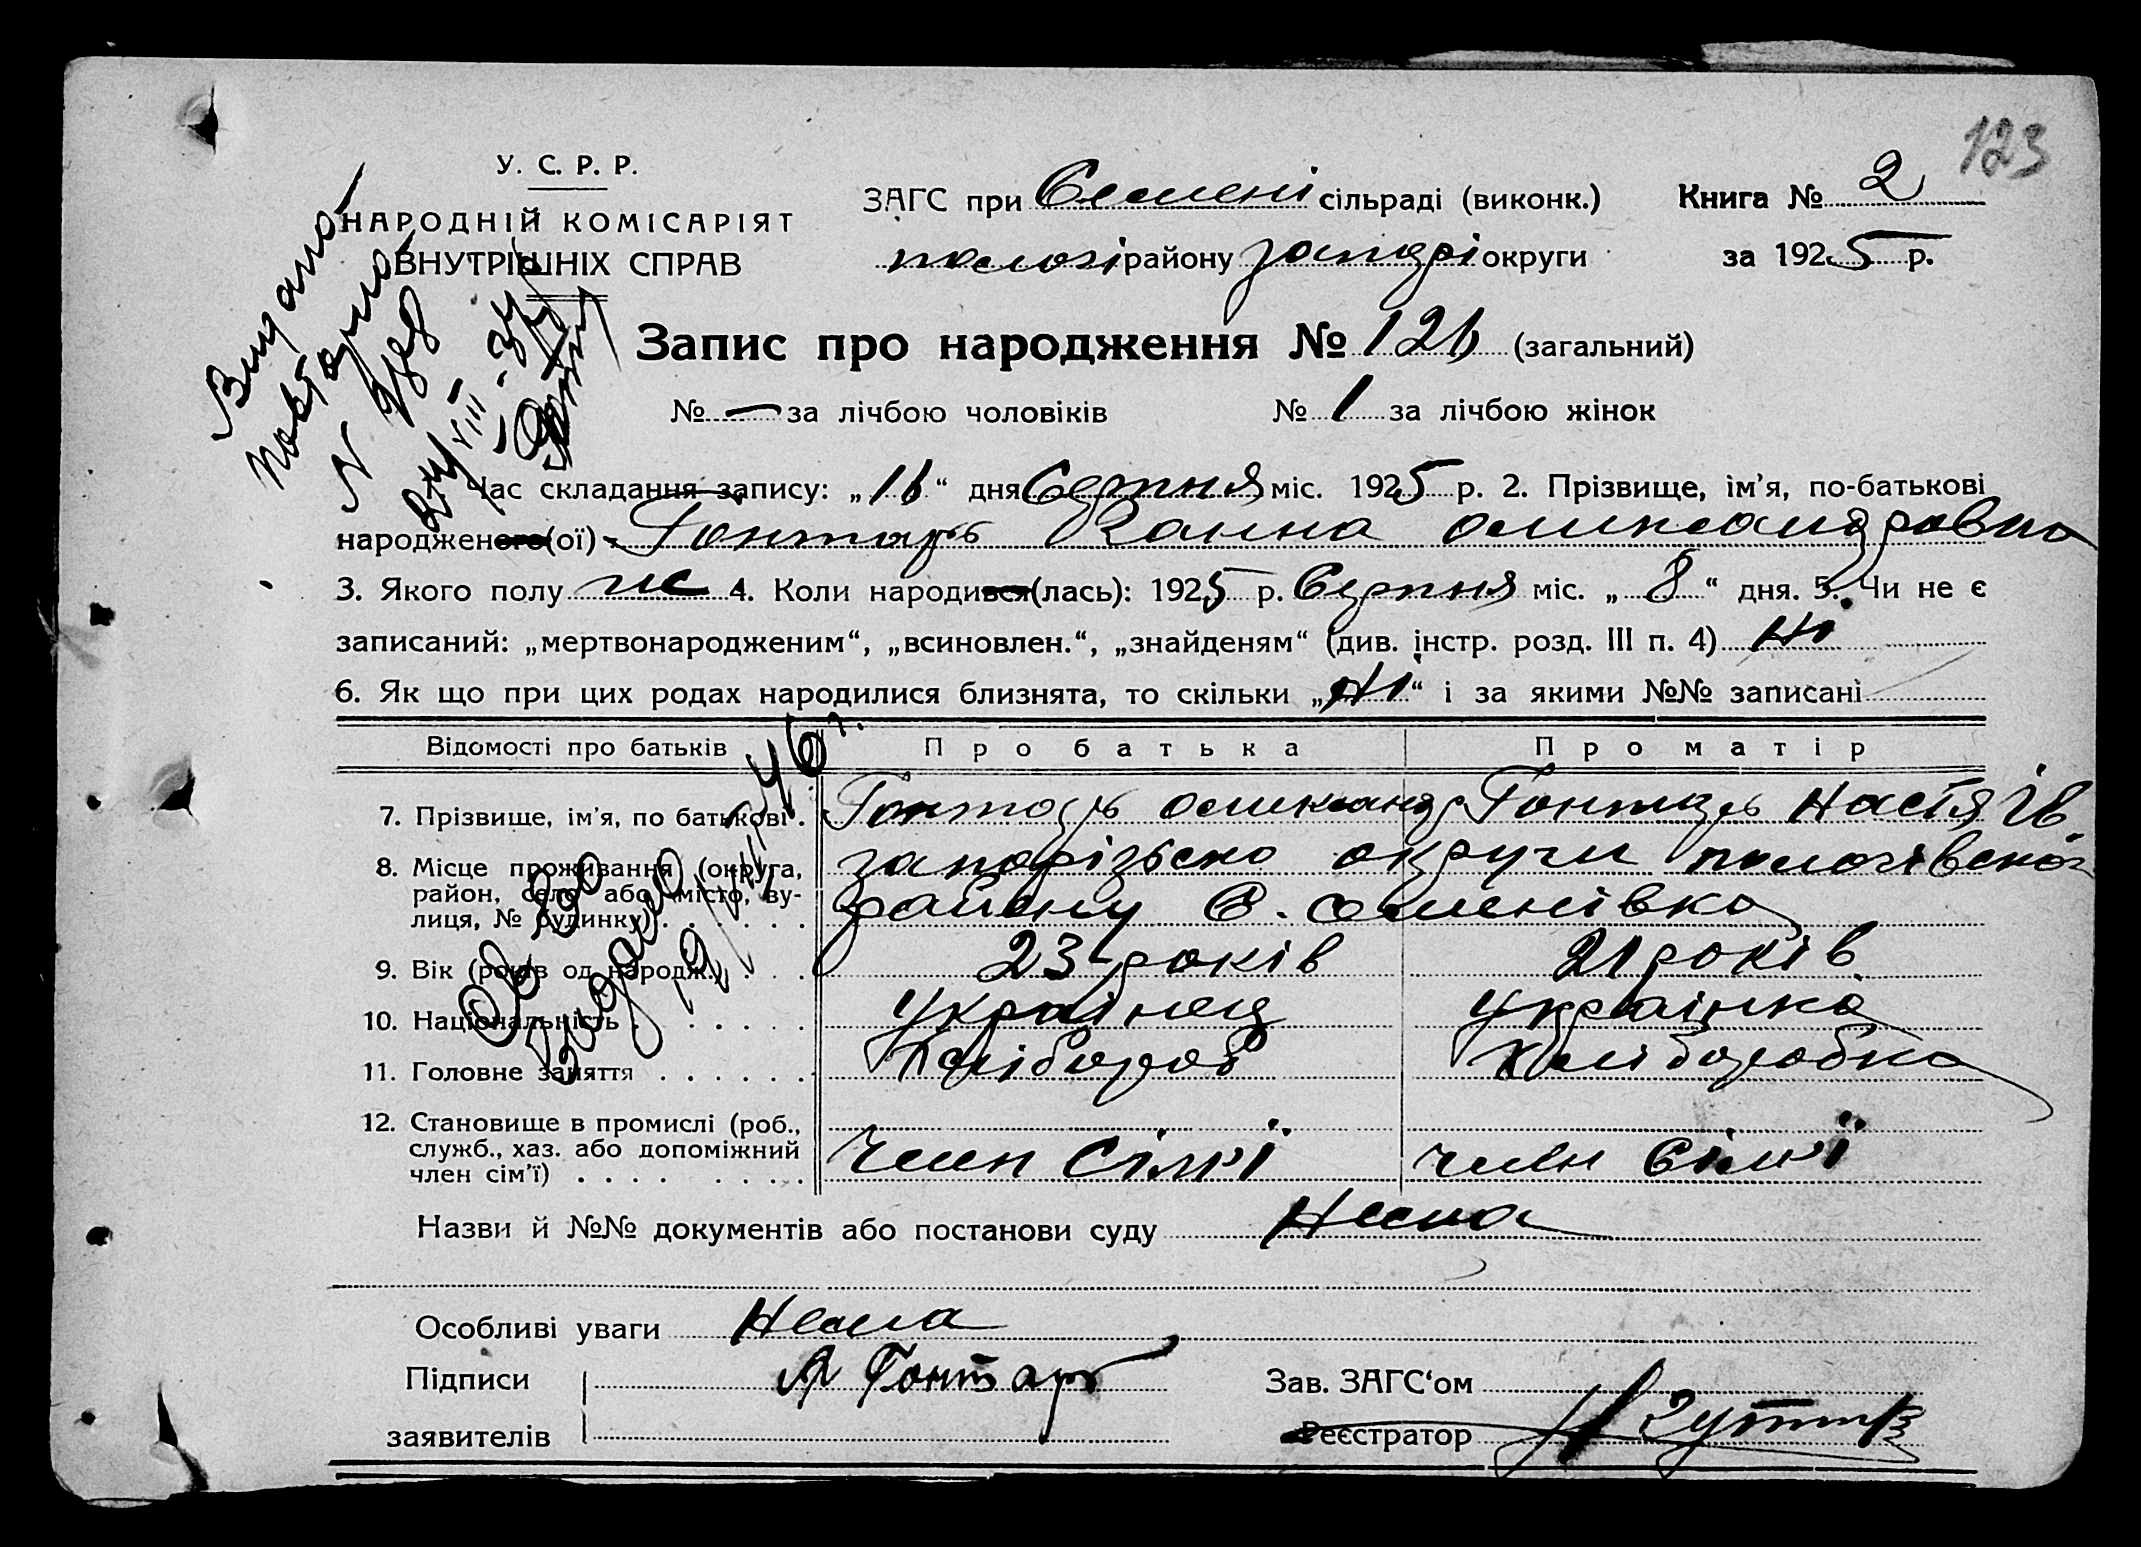 123
У. С. Р. Р.
НАРОДНІЙ КОМІСАРІЯТ
ВНУТРІШНІХ СПРАВ
ЗАГС при Семені сільраді (виконк.)
Книга № 2
пологі району запорі округи
за 1925 р.
Видано
повторно
N
Запис про народження № 126 (загальний)
№ — за лічбою чоловіків № 1 за лічбою жінок
Час складання запису: „16“ дня Серпня міс. 1925 р. 2. Прізвище, ім’я, по-батькові
народженого(ої) Гонтарь Ганна олександровна
3. Якого полу ж 4. Коли народився(лась): 1925 р. Серпня міс. „8“ дня. 5. Чи не є
записаний: „мертвонародженим“, „всиновлен.“, „знайденям“ (див. інстр. розд. III п. 4) Ні
6. Як що при цих родах народилися близнята, то скільки „Ні“ і за якими №№ записані
Відомості про батьків Про батька Про матір
7. Прізвище, ім’я, по батькові . Гонтарь олександ Гонтарь Настя Ів.
8. Місце проживання (округа, район, село або місто, вулиця, № будинку) запорізько округи пологівского
району С. семенівка
9. Вік (років од народж.) 23 років 21 років
10. Національність Українец Українка
11. Головне заняття Хлібороб Хліборобка
12. Становище в промислі (роб., служб., хаз. або допоміжний член сім’ї) член сімʼї член сімʼї
видано 46 г.
Назви й №№ документів або постанови суду Нема
Особливі уваги Нема
Підписи заявителів Гонтарь
Зав. ЗАГС‘ом
Реєстратор